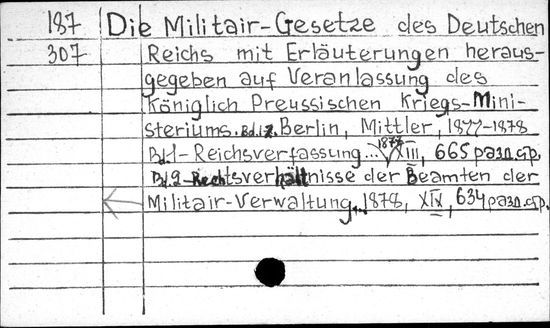 187 Die Militair-Gesetze des Deutschen
307 Reichs mit Erläuterungen heraus-
gegeben auf Veranlassung des
Königlich Preussischen Kriegs-Mini-
steriums. Bd.1,2. Berlin, Mittler, 1877-1878
Bd.1-Reichsverfassung... 1877, XIII, 665 разд.стр.
Bd.2-Rechtsverhältnisse der Beamten der
Militair-Verwaltung... 1878, XIX, 634 разд.стр.